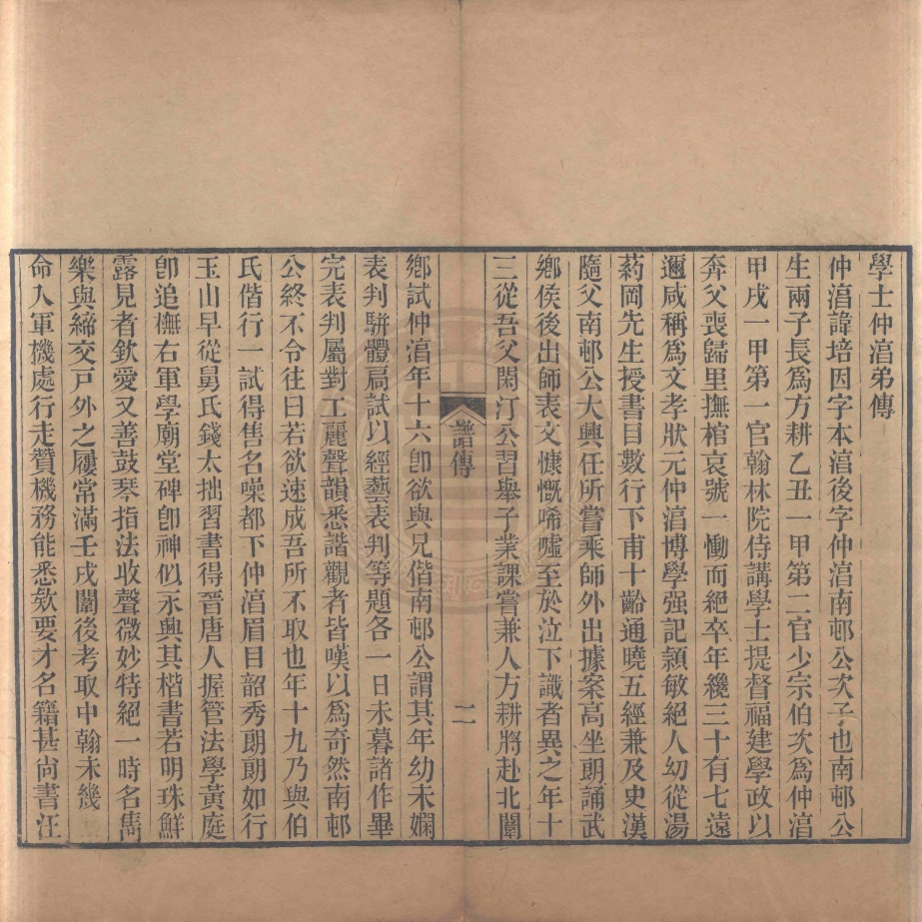 學士仲淳弟傳
仲淳諱培因字本淳後字仲淳南邨公次子也南邨公
生兩子長爲方耕乙丑一甲第二官少宗伯次爲仲淳
甲戌一甲第一官翰林院侍講學士提督福建學政以
奔父喪歸里撫棺哀號一慟而絕卒年纔三十有七遠
邇咸稱爲文孝狀元仲淳博學强記頴敏絕人幼從湯
药岡先生授書目數行下甫十齡通曉五經兼及史漢
隨父南邨公大興任所嘗乘師外出據案高坐朗誦武
鄉侯後出師表文慷慨唏噓至於泣下識者異之年十
三從吾父閑汀公習舉子業課嘗兼人方耕將赴北闈
譜傳
二
鄉試仲淳年十六卽欲與兄偕南邨公謂其年幼未嫺
表判駢體扃試以經藝表判等題各一日未暮諸作畢
完表判屬對工麗聲韻悉諧觀者皆嘆以爲奇然南邨
公終不令往曰若欲速成吾所不取也年十九乃與伯
氏偕行一試得售名噪都下仲淳眉目韶秀朗朗如行
玉山早從舅氏錢太拙習書得晉唐人握管法學黃庭
卽追橅右軍學廟堂碑卽神似永興其楷書若明珠鮮
露見者欽愛又善鼓琴指法收聲微妙特絕一時名雋
樂與締交戸外之屨常滿壬戌闈後考取中翰未幾
命入軍機處行走贊機務能悉欸要才名籍甚尚書汪